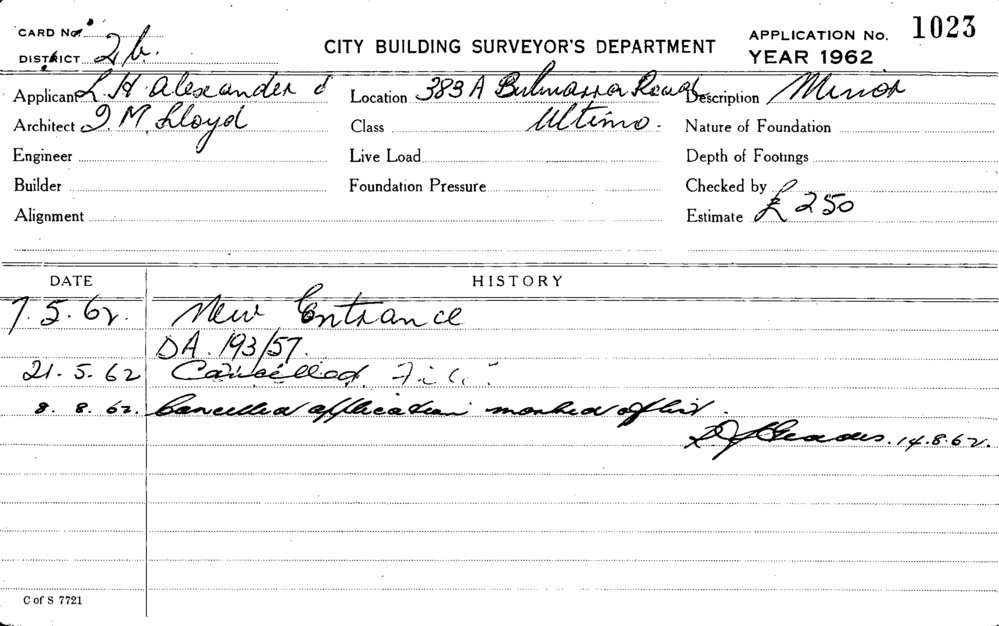 CARD No.
DISTRICT 2b.
CITY BUILDING SURVEYOR'S DEPARTMENT
APPLICATION No. 1023
YEAR 1962
Applicant L H Alexander &
Location 383A Bulwarra Road
Description Minor
Architect I M Lloyd
Class Ultimo.
Nature of Foundation
Engineer
Live Load
Depth of Footings
Builder
Foundation Pressure
Checked by
Alignment
Estimate £ 250
DATE HISTORY
7.5.62. New Entrance
DA. 193/57.
21.5.62 Cancelled
8.8.62. Cancelled application marked off list.
14.8.62.
C of S 7721